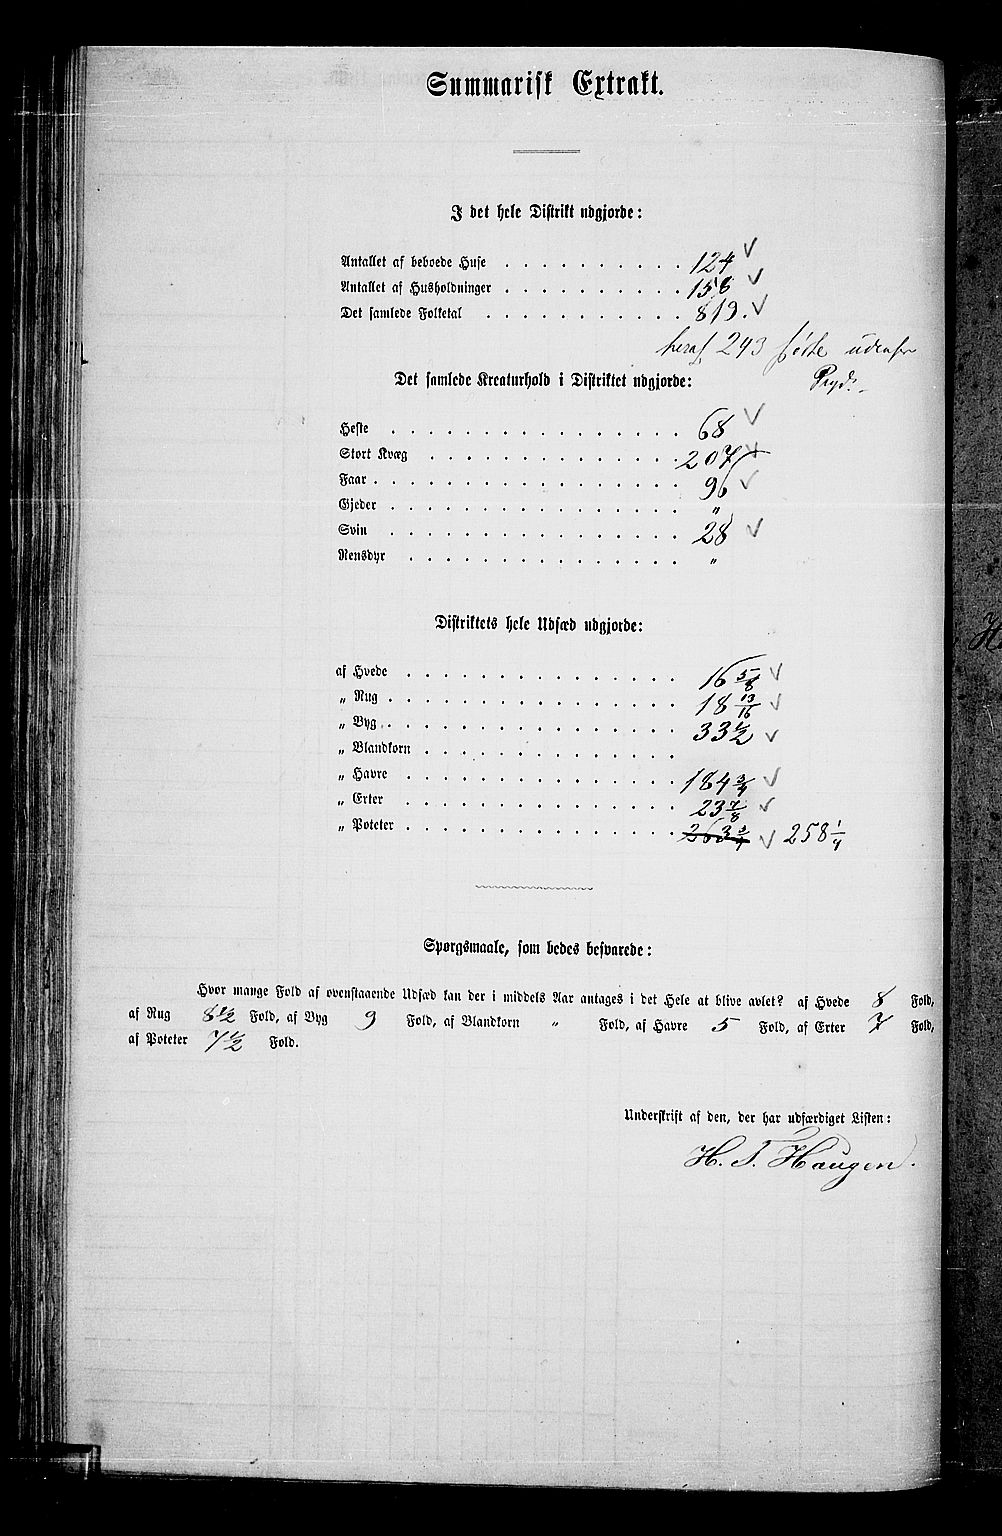 Summarisk Extrakt.
I det hele Distrikt udgjorde:
Antallet af beboede Huse . . . . . . . . . . 124 ✓
Antallet af Husholdninger . . . . . . . . . . 158 ✓
Det samlede Folketal . . . . . . . . . . . 819. ✓
heraf 293 fødte udenfor
Det samlede Kreaturhold i Distriktet udgjorde:
Heste . . . . . . . . . . . . . . . . 68 ✓
Stort Kvæg . . . . . . . . . . . . . . 207 ✓
Faar . . . . . . . . . . . . . . . . . 96 ✓
Gjeder . . . . . . . . . . . . . . . . "
Svin . . . . . . . . . . . . . . . . 28 ✓
Rensdyr . . . . . . . . . . . . . . . "
Distriktets hele Udsæd udgjorde:
af Hvede . . . . . . . . . . . . . . . 16 5/8 ✓
„ Rug . . . . . . . . . . . . . . . . 18 13/16 ✓
„ Byg . . . . . . . . . . . . . . . . 33 1/2 ✓
„ Blandkorn . . . . . . . . . . . . . .
„ Havre . . . . . . . . . . . . . . . 184 3/4 ✓
„ Erter . . . . . . . . . . . . . . . 23 7/8 ✓
„ Poteter . . . . . . . . . . . . . . . 263 3/4 ✓ 258 1/4
Spørgsmaale, som bedes besvarede:
Hvor mange Fold af ovenstaaende Udsæd kan der i middels Aar antages i det Hele at blive avlet? af Hvede 8 Fold,
af Rug 8 1/2 Fold, af Byg 9 Fold, af Blandkorn " Fold, af Havre 5 Fold, af Erter 7 Fold,
af Poteter 7 1/2 Fold.
Underskrift af den, der har udfærdiget Listen:
H. T. Haugen.